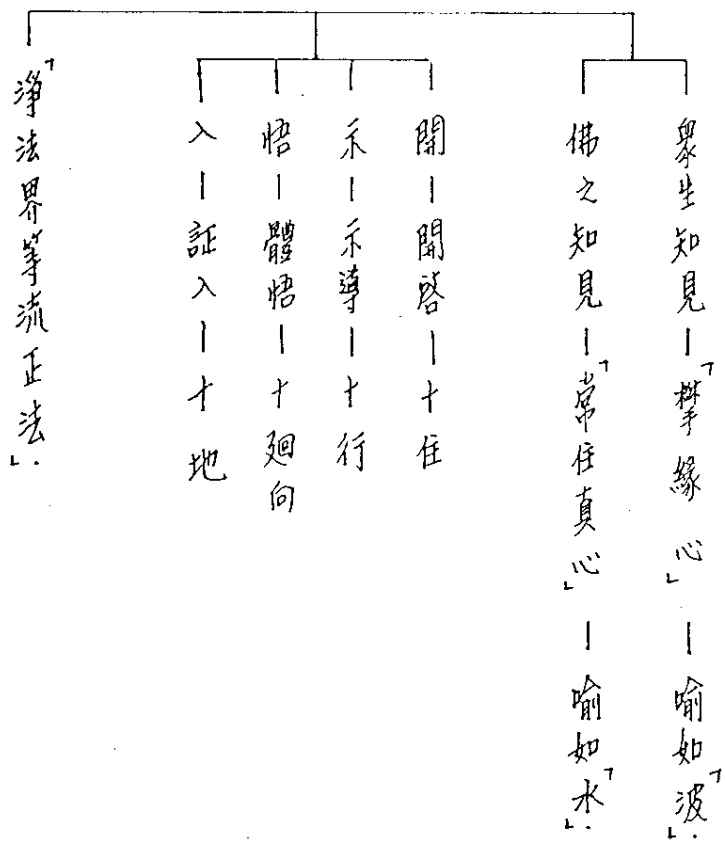 眾生知見—「攀緣心」—喻如「波」.
佛之知見—「常住真心」—喻如「水」.
開—開啓—十住
示—示導—十行
悟—體悟—十廻向
入—証入—十地
「淨法界等流正法」.